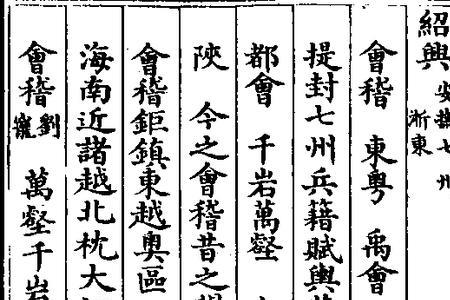 紹興 安撫七州 浙東
會稽 東粵 禹會
提封七州兵籍賦輿
都會 千岩萬壑
陜 今之會稽昔之
會稽鉅鎮東越奧區
海南近諸越北枕大
會稽 劉寵 萬壑千岩